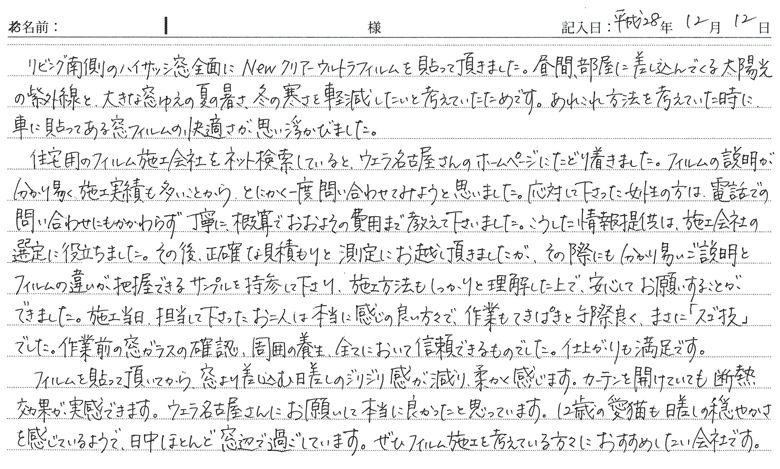 お名前： 様 記入日：平成28年 12月 12日
リビング南側のハイサッシ窓全面に Newクリアーウルトラフィルムを貼って頂きました。昼間、部屋に差し込んでくる太陽光
の紫外線と、大きな窓ゆえの夏の暑さ、冬の寒さを軽減したいと考えていたためです。あれこれ方法を考えていた時に、
車に貼ってある窓フィルムの、快適さが思い浮かびました。
住宅用のフィルム施工会社をネット検索していると、ウエラ名古屋さんのホームページにたどり着きました。フィルムの説明が
分かり易く、施工実績も多いことから、とにかく一度問い合わせてみようと思いました。応対して下さった女性の方は、電話での
問い合わせにもかかわらず丁寧に、概算でおおよその費用まで教えて下さいました。こうした情報提供は、施工会社の
選定に役立ちました。その後、正確な見積もりと測定にお越し頂きましたが、その際にも分かり易いご説明と
フィルムの違いが把握できるサンプルを持参して下さり、施工方法もしっかりと理解した上で、安心してお願いすることが
できました。施工当日、担当して下さったお二人は本当に感じの良い方々で、作業もてきぱきと手際良く、まさに「スゴ技」
でした。作業前の窓ガラスの確認、周囲の養生、全てにおいて信頼できるものでした。仕上がりも満足です。
フィルムを貼って頂いてから、窓より差し込む日差しのジリジリ感が減り、柔かく感じます。カーテンを開けていても断熱
効果が実感できます。ウエラ名古屋さんにお願いして本当に良かったと思っています。12歳の愛猫も日差しの穏やかさ
を感じているようで、日中ほとんど窓辺で過ごしています。ぜひフィルム施工を考えている方々におすすめしたい会社です。